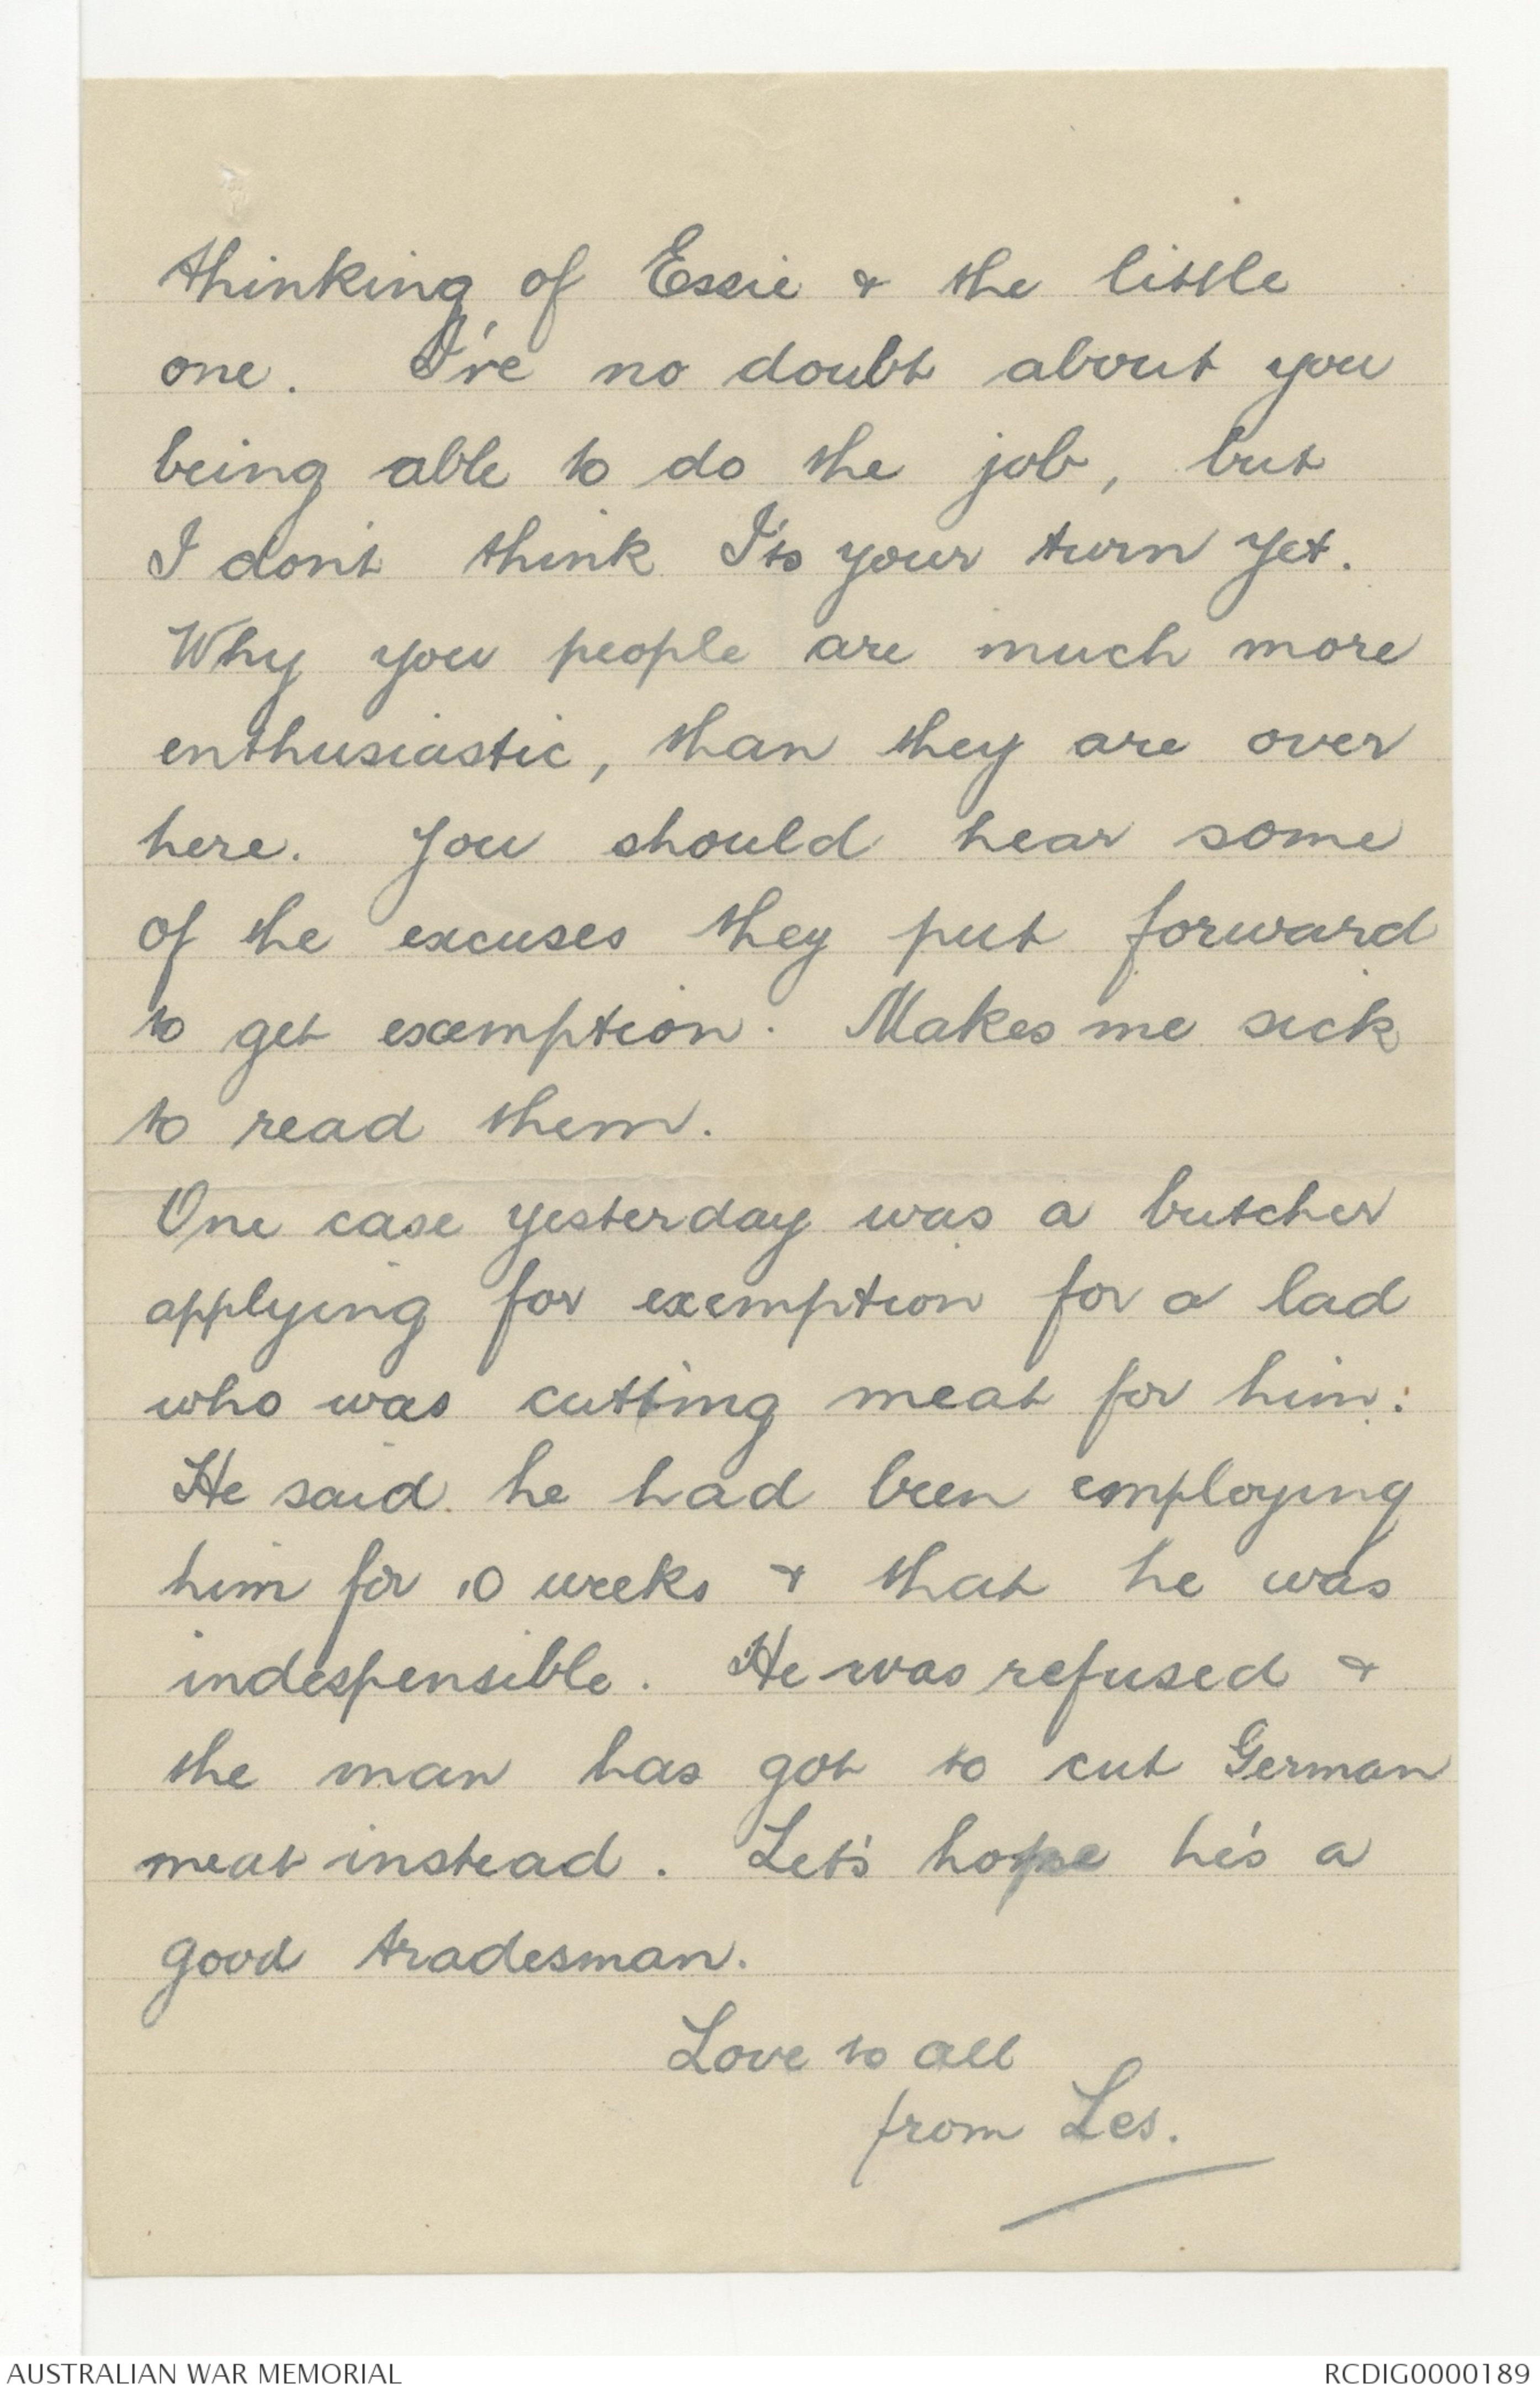 thinking of Essie & the little
one. I've no doubt about you
being able to do the job, but
I dont think I'ts your turn yet.
Why you people are much more
enthusiastic, than they are over
here. You should hear some
of the excuses they put forward
to get exemption. Makes me sick
to read them.
One case yesterday was a butcher
applying for exemption for a lad
who was cutting meat for him:
He said he had been employing
him for 10 weeks & that he was
indespensible. He was refused &
the man has got to cut German
meat instead. Let's hope he's a
good tradesman.
Love to all
from Les.
AUSTRALIAN WAR MEMORIAL
RCDIG0000189